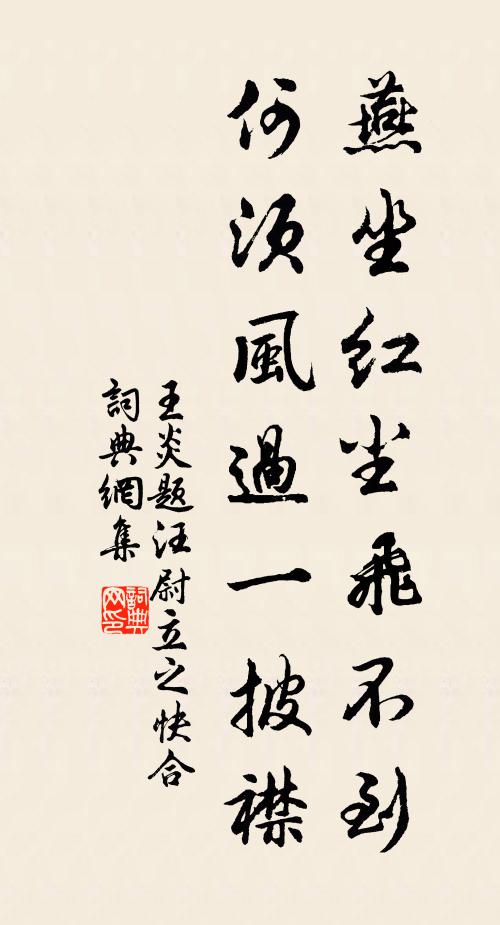 燕坐红尘飛不到
何须風過一披襟
王炎题汪尉立之快合
詞典網集
詞典网印